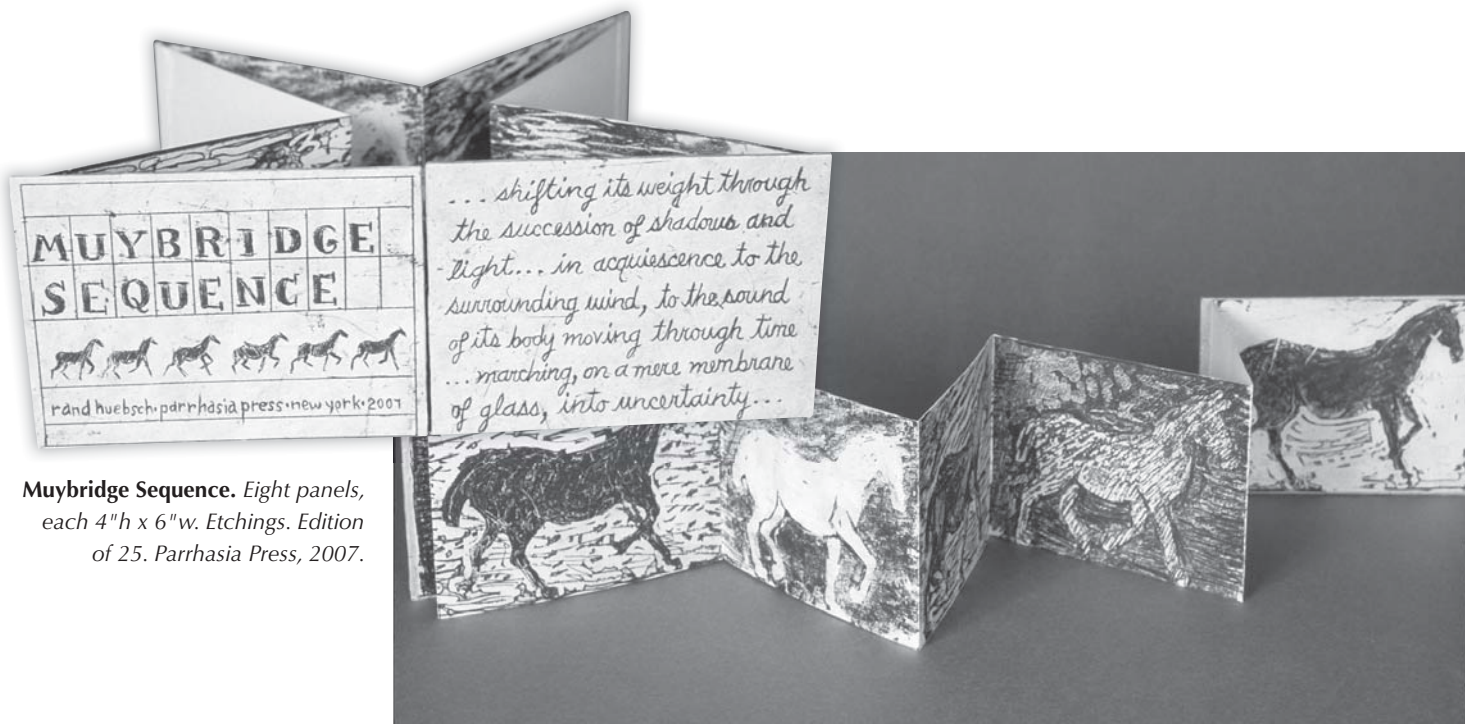 MUYBRIDGE
SEQUENCE
rand huebsch·parrhasia press·new york·2007
... shifting its weight through
the succession of shadows and
light... in acquiescence to the
surrounding wind, to the sound
of its body moving through time
... marching, on a mere membrane
of glass, into uncertainty...
Muybridge Sequence. Eight panels,
each 4"h x 6"w. Etchings. Edition
of 25. Parrhasia Press, 2007.